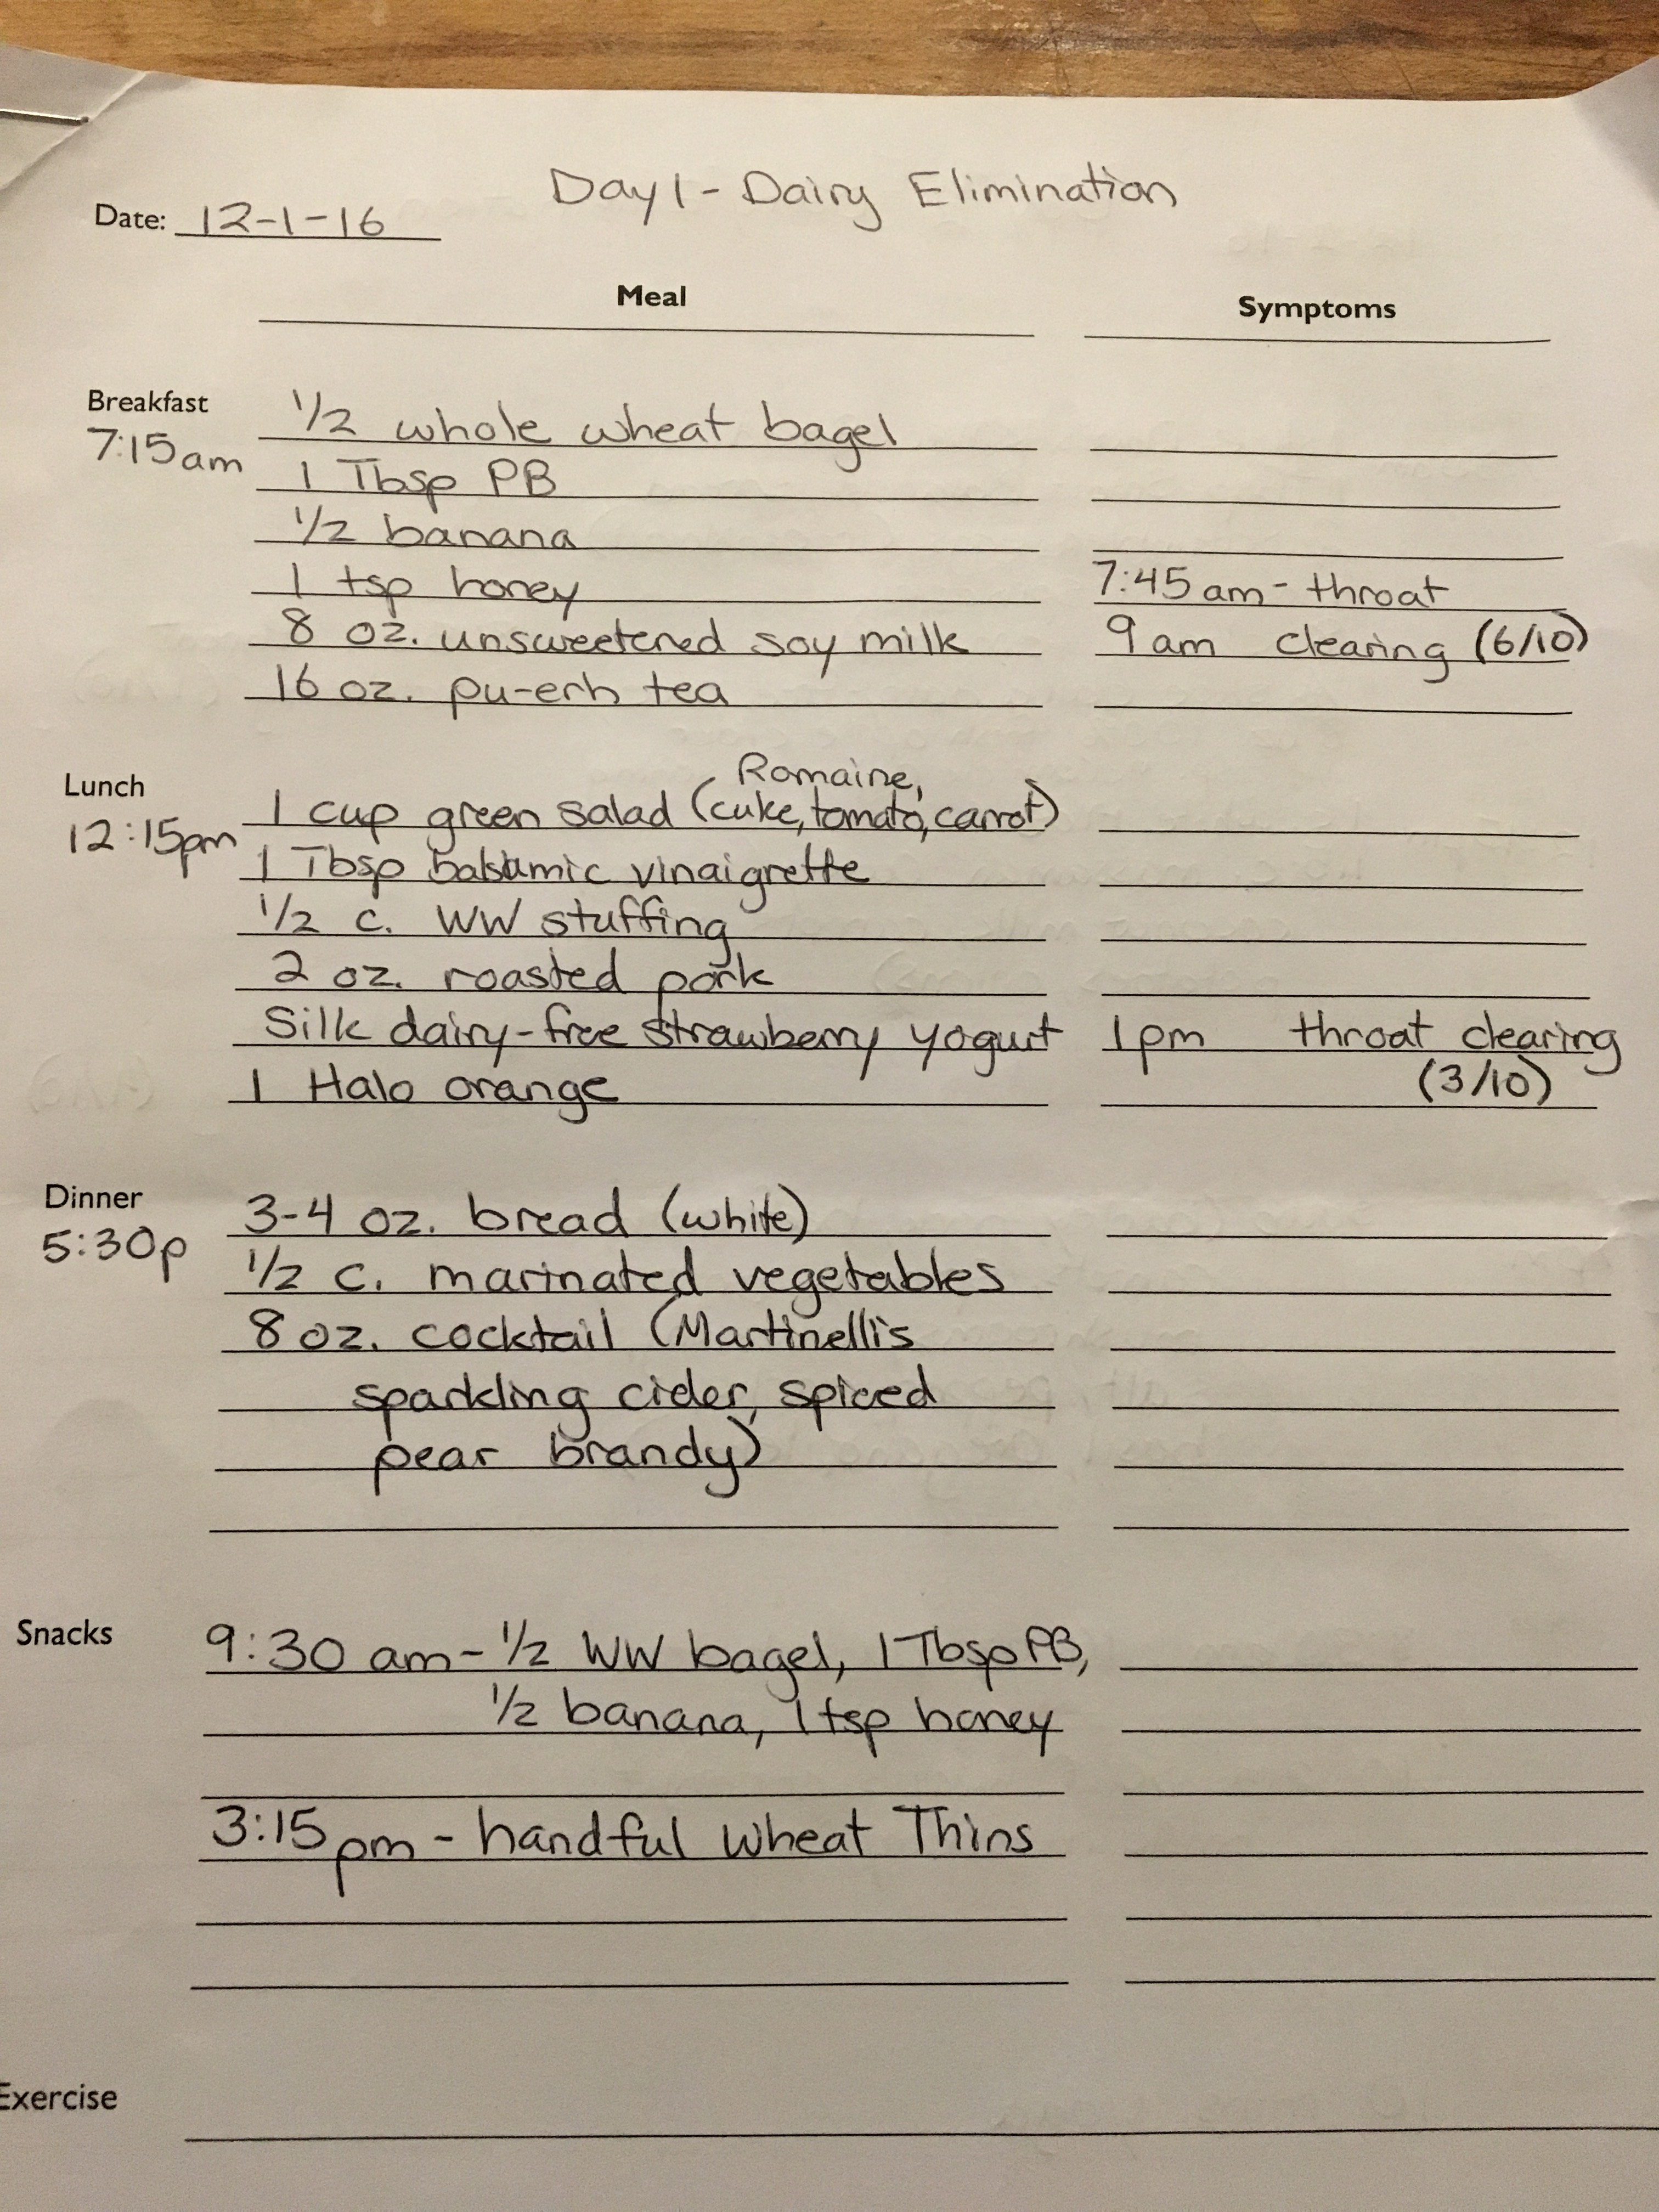 Day 1 - Dairy Elimination
Date: 12-1-16
Meal Symptoms
Breakfast 1/2 whole wheat bagel
7:15am
1 Tbsp PB
1/2 banana
1 tsp honey 7:45 am - throat
8 oz. unsweetened soy milk 9am clearing (6/10)
16 oz. pu-erh tea
Romaine,
Lunch 1 cup green salad (cuke, tomato, carrot)
12:15pm
1 Tbsp balsamic vinaigrette
1/2 c. WW stuffing
2 oz. roasted pork
Silk dairy-free strawberry yogurt 1pm throat clearing
1 Halo orange (3/10)
Dinner 3-4 oz. bread (white)
5:30p 1/2 c. marinated vegetables
8 oz. cocktail (Martinelli's
sparkling cider, spiced
pear brandy)
Snacks 9:30 am - 1/2 WW bagel, 1 Tbsp PB,
1/2 banana, 1 tsp honey
3:15pm - handful Wheat Thins
Exercise